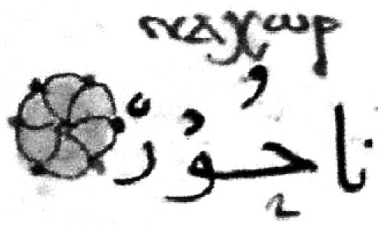 ⲛⲁⲭⲱⲣ
ناحُوْر